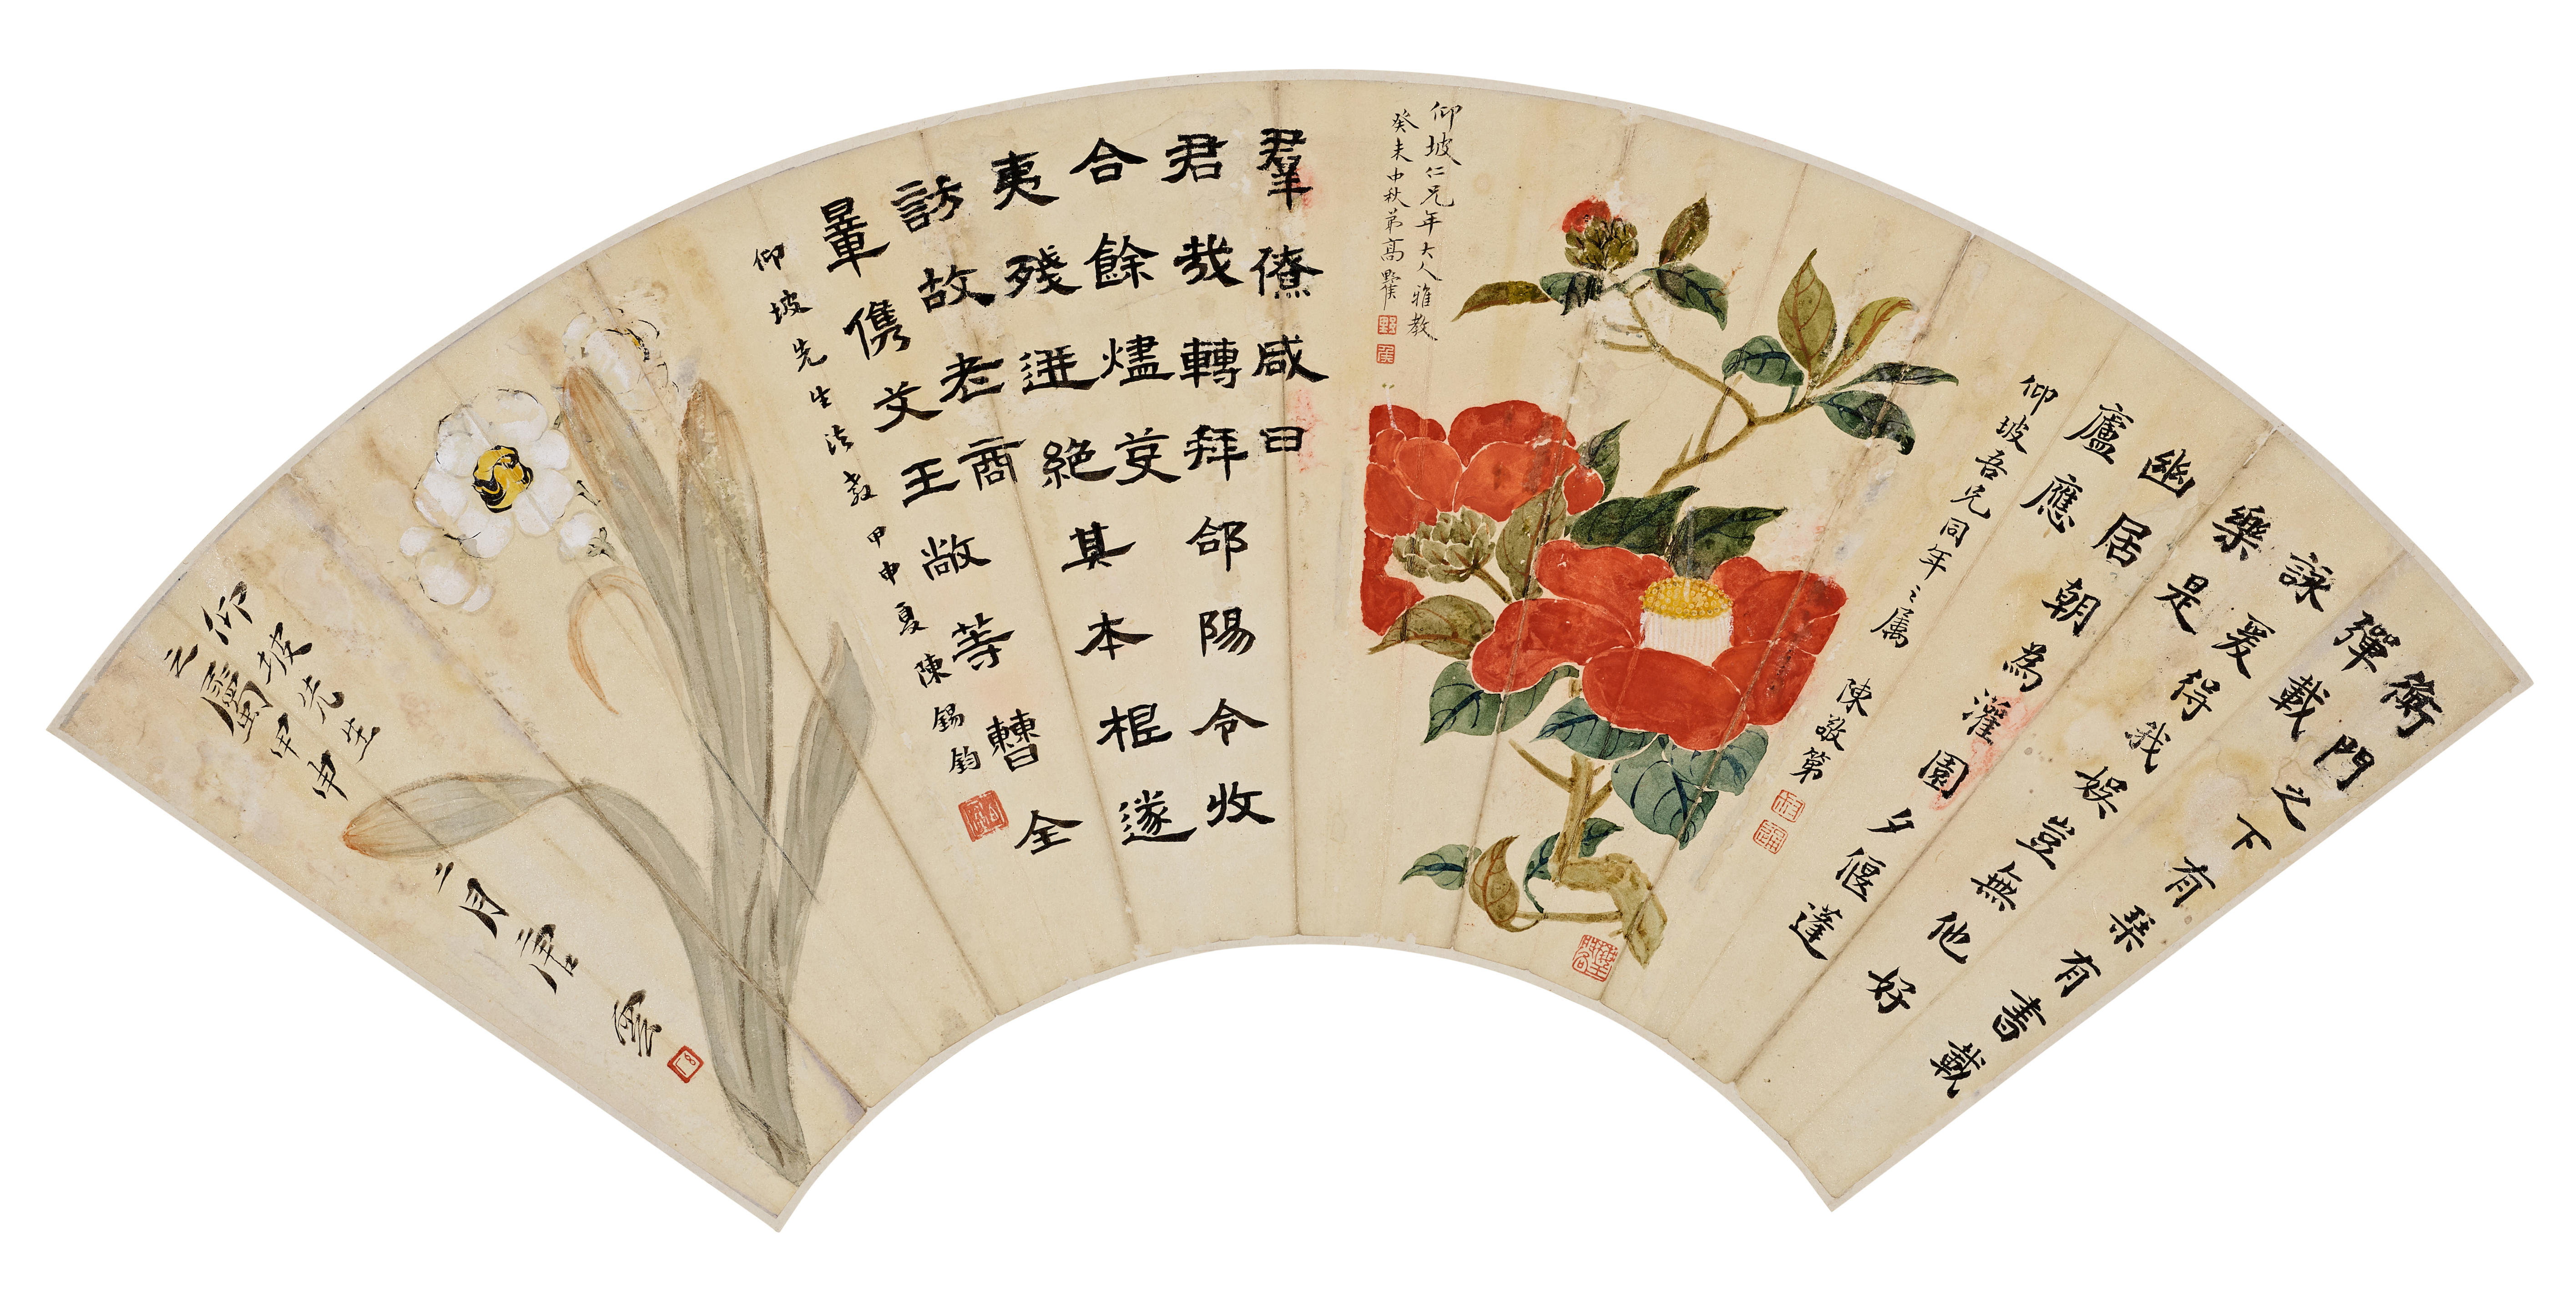 衡門之下有琴有書載
彈載
詠爰得我娛豈無他好
樂是
幽居朝為灌園夕偃蓬
廬應
仰坡吾兄同年之屬
陳敬第
仰坡仁兄年大人雅教
癸未中秋弟高野侯
羣僚咸曰
君哉轉拜郃陽令收
合餘燼芟
夷殘迸絕其本根遂
訪故老商
暈儁艾王敞等曹全
仰坡先生法教甲申夏陳錫鈞
仰坡先生
之屬甲申
二月唐雲